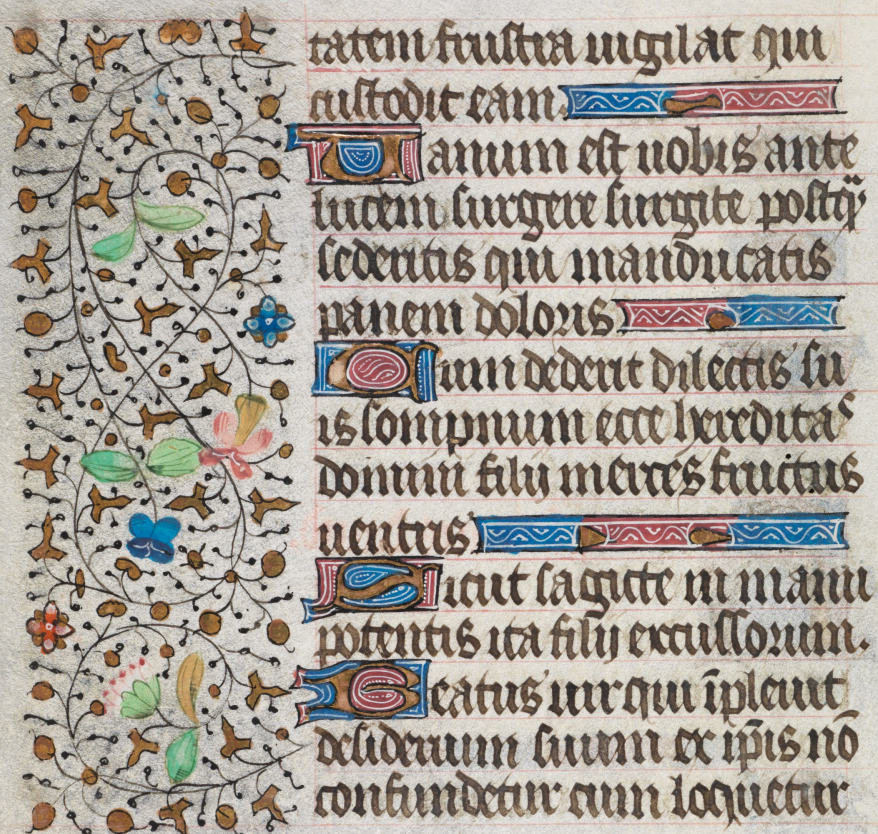 tatem frustra uigilat qui
custodit eam.
Uanum est nobis ante
lucem surgere surgite postq̄
sederitis qui manducatis
panem doloris
Cum dederit dilectis su
is sompnum ecce hereditas
domini filij merces fructus
uentris
Sicut sagitte in manu
potentis ita filij excussorum.
Beatus uir qui īpleuit
desiderium suum ex ip̄is nō
confundetur cum loquetur